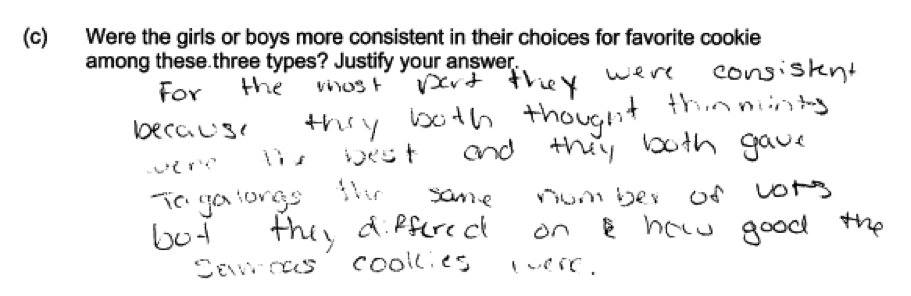 (c) Were the girls or boys more consistent in their choices for favorite cookie
among these three types? Justify your answer.
For the most part they were consistent
because they both thought thin mints
were the best and they both gave
Tagalongs the same number of vots
but they differed on how good the
Samoas cookies were.